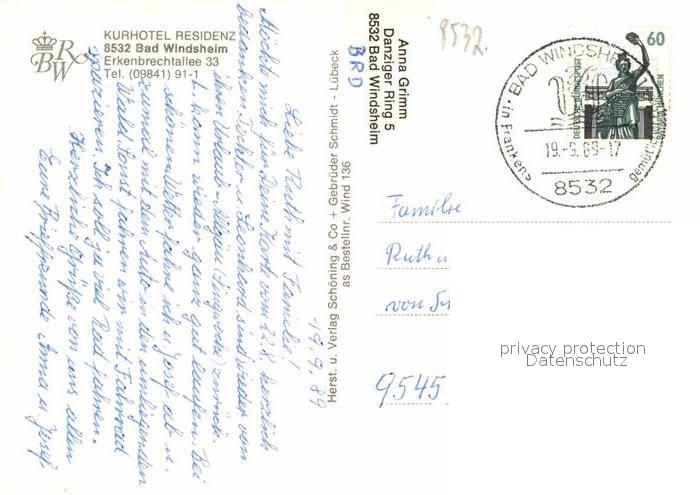 KURHOTEL RESIDENZ
8532 Bad Windsheim
Erkenbrechtallee 33
Tel. (09841) 91-1
RBW
19.9.89
Liebe Ruth mit Familie!
Möchte mich für Deine Karte vom 22.8. herzlich
bedanken. Tochter Leonhard sind wieder vom
Urlaub Allgäu zurück.
kann wieder ganz gut laufen. Bei
schönem Wetter fahre ich u. Josef ab u.
zumal mit dem Auto in den umliegenden
Wald. Sonst fahren wir mit Fahrrad
spazieren. Ich soll ja viel Rad fahren.
Herzliche Grüße von uns allen
Eure Brieffreunde Anna u. Josef
Herst. u. Verlag Schöning & Co + Gebrüder Schmidt - Lübeck
as Bestellnr. Wind 136
Anna Grimm
Danziger Ring 5
8532 Bad Windsheim
BRD
8532
60
DEUTSCHE BUNDESPOST
BAD WINDSHEIM
19.-9.89-17
in Frankens
8532
Familie
Ruth u
von
9545
privacy protection
Datenschutz